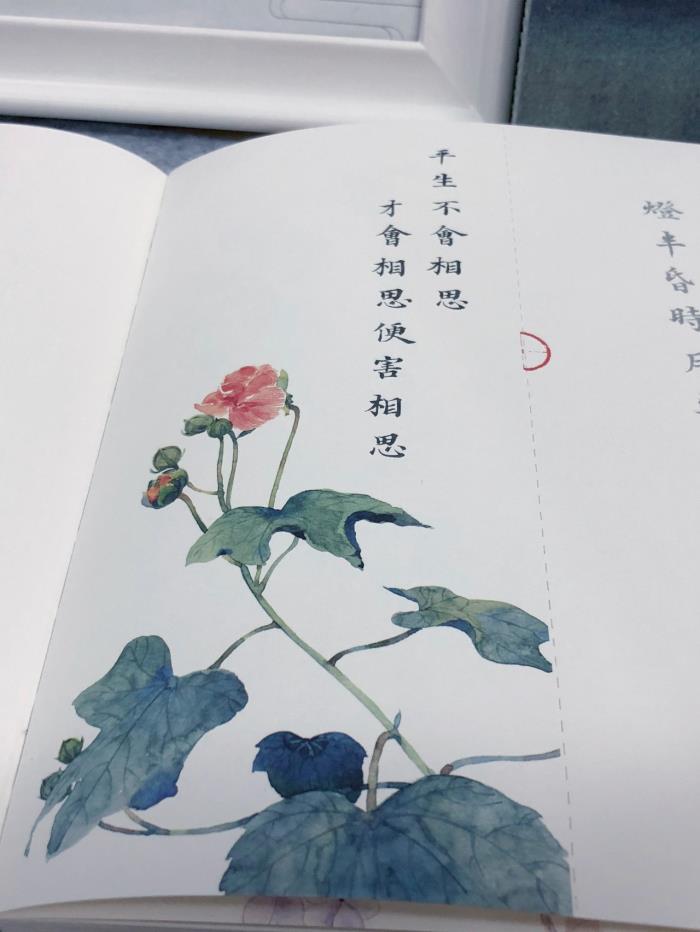 燈半昏時月
平生不會相思
才會相思便害相思